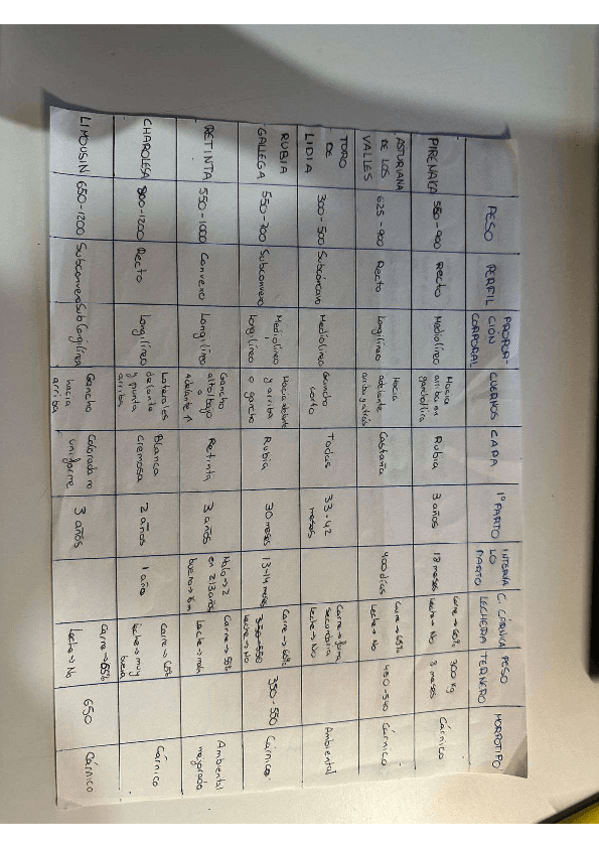 PESO
PERFIL
PROPOR-
CIÓN
CORPORAL
CUERNOS
CAPA
1º PARTO
INTERVA
LO
PARTO
C. CÁRNICA
LECHERA
PESO
TERNERO
MORFOTIPO
PIRENAICA
550-900
Recto
Mediolíneo
Hacia
arriba en
Rubia
3 años
18 meses
Carne → 60%
Leche → No
300 kg
8 meses
Cárnico
ASTURIANA
DE LOS
VALLES
625-900
Recto
Longilíneo
Hacia
adelante
arriba y atrás
Castaña
400 días
Carne → 65%
Leche → No
450-540
Cárnico
TORO
DE
LIDIA
300-500
Subcóncavo
Mediolíneo
Gancho
corto
Todas
33-42
meses
Carne →
secundaria
Leche → No
Ambiental
RUBIA
GALLEGA
550-700
Subconvexo
Mediolíneo
Longilíneo
Hacia adelante
y arriba
o gancho
Rubia
30 meses
13-14 meses
Carne → 60%
350-550
Leche → No
350-550
Cárnico
RETINTA
550-1000
Convexo
Longilíneo
Gancho
alto/bajo
o
adelante ↑
Retinta
3 años
Malo → 2
en 2/3 años
bueno →
Carne → 55%
Leche → mala
Ambiental
mejorado
CHAROLESA
800-1200
Recto
Longilíneo
Laterales
delante
y punta
arriba
Blanca
cremosa
2 años
1 año
Carne → 65%
Leche → muy
buena
Cárnico
LIMOUSIN
650-1200
Subconvexo
Sublongilíneo
Gancho
hacia
arriba
Colorada no
uniforme
3 años
Carne → 65%
Leche → No
650
Cárnico